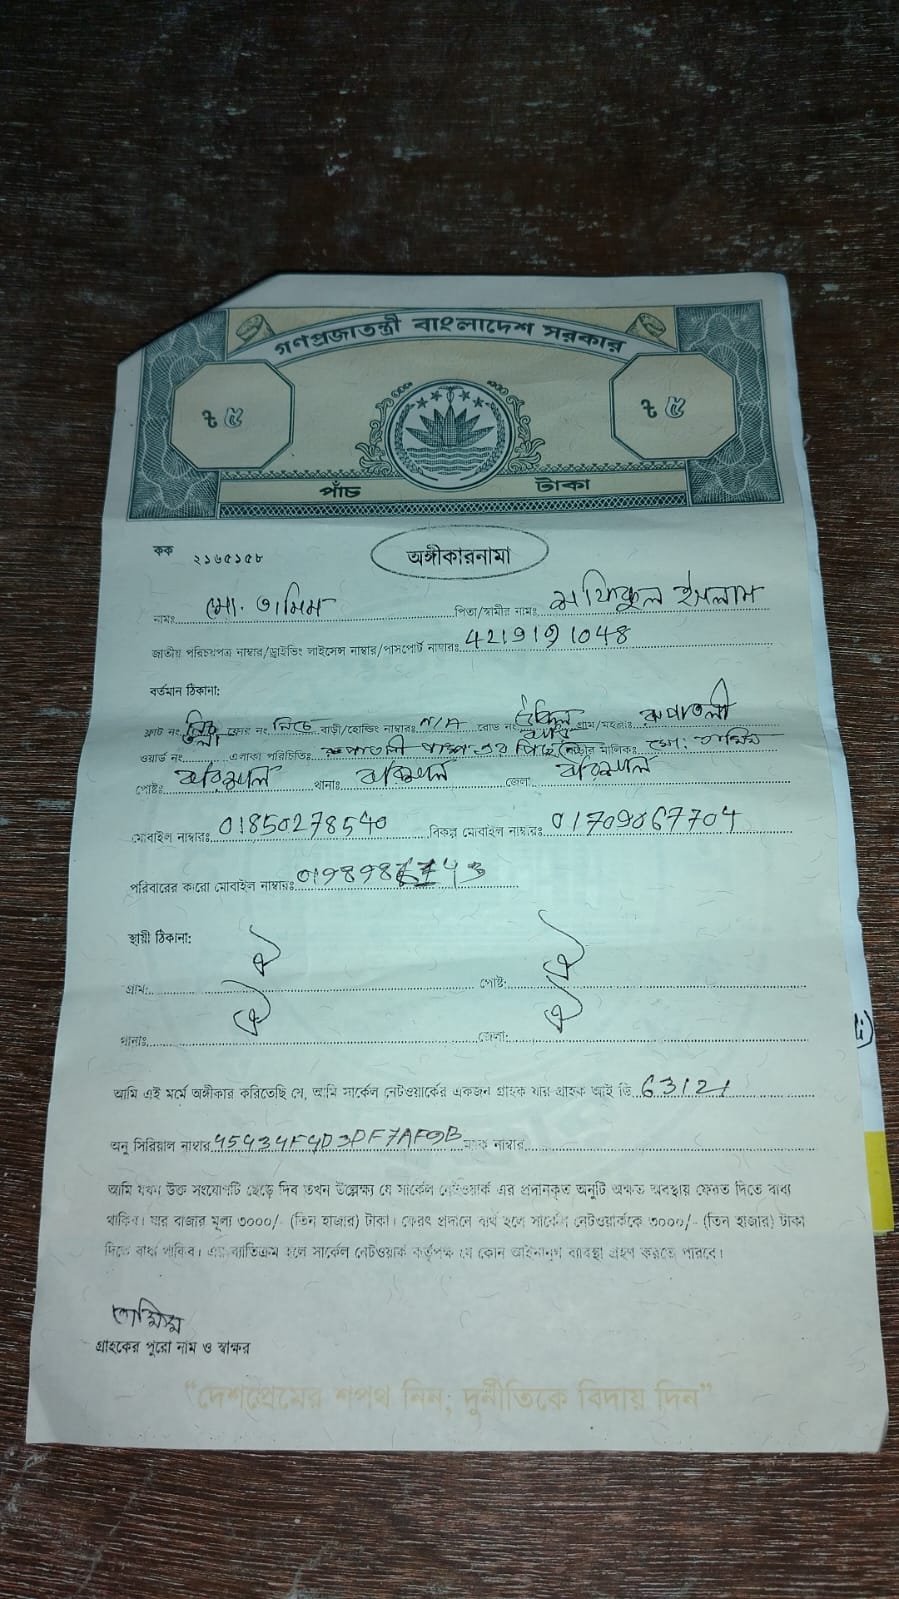 গণপ্রজাতন্ত্রী বাংলাদেশ সরকার
৳ ৫ ৳ ৫
পাঁচ টাকা
কক ২১৬৫১৫৮
অঙ্গীকারনামা
নামঃ মো. তামিম পিতা/স্বামীর নামঃ ইসলাম
জাতীয় পরিচয়পত্র নাম্বার/ড্রাইভিং লাইসেন্স নাম্বার/পাসপোর্ট নাম্বারঃ 4219191048
বর্তমান ঠিকানা:
ফ্লাট নং নিচ তলা ফ্লোর নং নিচে বাড়ী/হোল্ডিং নাম্বারঃ N/A রোড নং উকিল বাড়ি গ্রাম/মহল্লাঃ রুপাতলী
ওয়ার্ড নং এলাকা পরিচিতিঃ রুপাতলী এর পিছে মালিকঃ মো: তামিম
পোষ্টঃ বরিশাল থানাঃ বরিশাল জেলা: বরিশাল
মোবাইল নাম্বারঃ 01850278540 বিকল্প মোবাইল নাম্বারঃ 01709067704
পরিবারের কারো মোবাইল নাম্বারঃ
স্থায়ী ঠিকানা:
গ্রাম: ঐ পোষ্ট: ঐ
থানাঃ ঐ জেলা: ঐ
আমি এই মর্মে অঙ্গীকার করিতেছি যে, আমি সার্কেল নেটওয়ার্কের একজন গ্রাহক যার গ্রাহক আই ডি 63121
অনু সিরিয়াল নাম্বার 45434F4D3DF7AF9B নাম্বার
আমি যখন উক্ত সংযোগটি ছেড়ে দিব তখন উল্লেখ্য যে সার্কেল নেটওয়ার্ক এর প্রদানকৃত অনুটি অক্ষত অবস্থায় ফেরত দিতে বাধ্য
থাকিব। যার বাজার মূল্য ৩০০০/- (তিন হাজার) টাকা। ফেরৎ প্রদানে ব্যর্থ হলে সার্কেল নেটওয়ার্ককে ৩০০০/- (তিন হাজার) টাকা
দিতে বাধ্য থাকিব। এর ব্যতিক্রম হলে সার্কেল নেটওয়ার্ক কর্তৃপক্ষ যে কোন আইনানুগ ব্যবস্থা গ্রহণ করতে পারবে।
তামিম
গ্রাহকের পুরো নাম ও স্বাক্ষর
"দেশপ্রেমের শপথ নিন, দুর্নীতিকে বিদায় দিন"